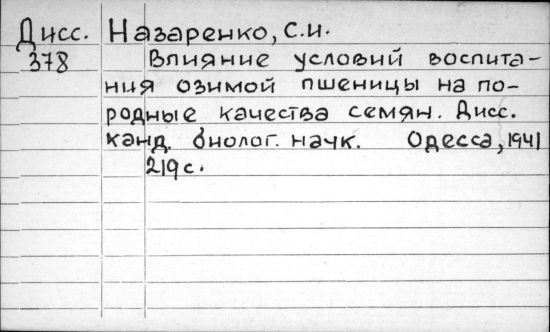 Дисс. Назаренко, С.И.
378 Влияние условий воспита-
ния озимой пшеницы на по-
родные качества семян. Дисс.
канд. биолог. наук. Одесса, 1941
219 с.